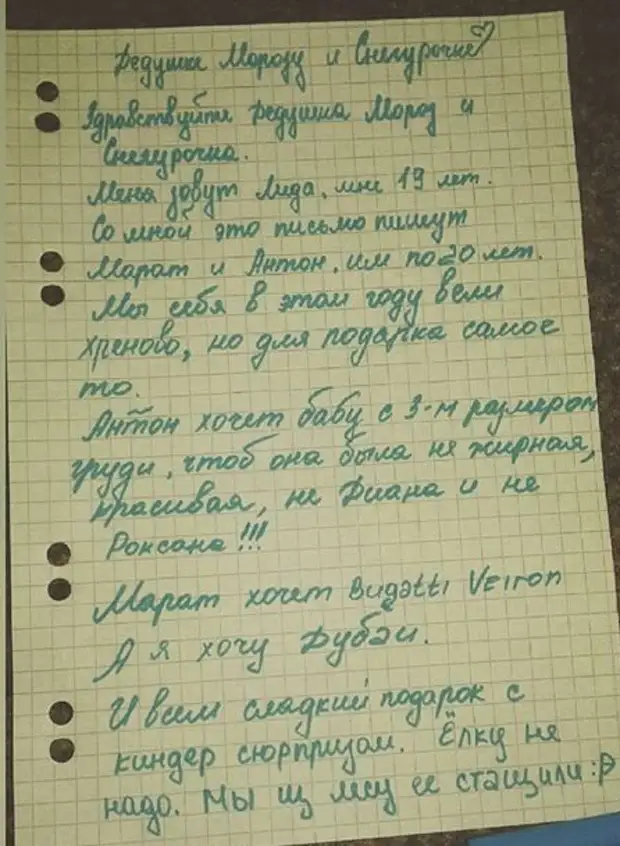 Дедушке Морозу и Снегурочке♡
Здравствуйте Дедушка Мороз и
Снегурочка.
Меня зовут Лида, мне 19 лет.
Со мной это письмо пишут
Марат и Антон, им по 20 лет.
Мы себя в этом году вели
хреново, но для подарка самое
то.
Антон хочет бабу с 3-м размером
груди, чтоб она была не жирная,
красивая, не Диана и не
Роксана!!!
Марат хочет Bugatti Veiron
А я хочу Дубэи.
И всем сладкий подарок с
киндер сюрпризом. Ёлку не
надо. Мы из лесу её стащили :P